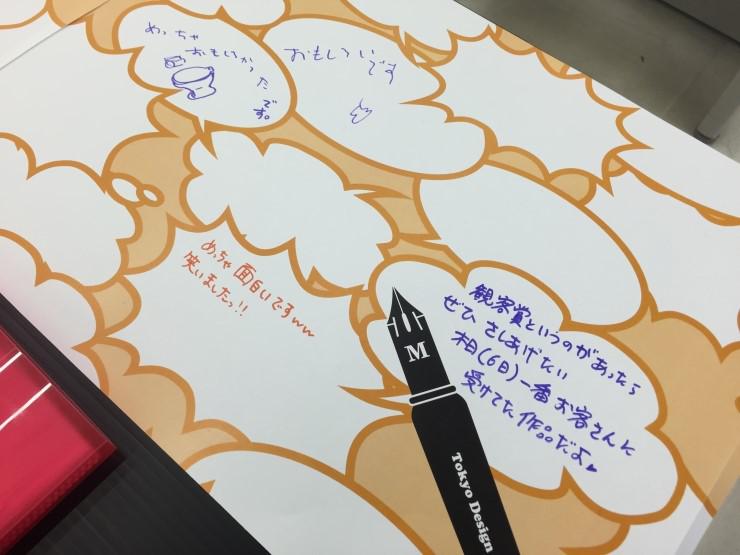 めっちゃ
おもしろかった
です。
おもしろい
です
めっちゃ面白いですww
笑いましたっ!!
観客賞というのがあったら
ぜひ さしあげたい
本日(6日)一番お客さんに
受けてた作品だよ♥
M
Tokyo Design